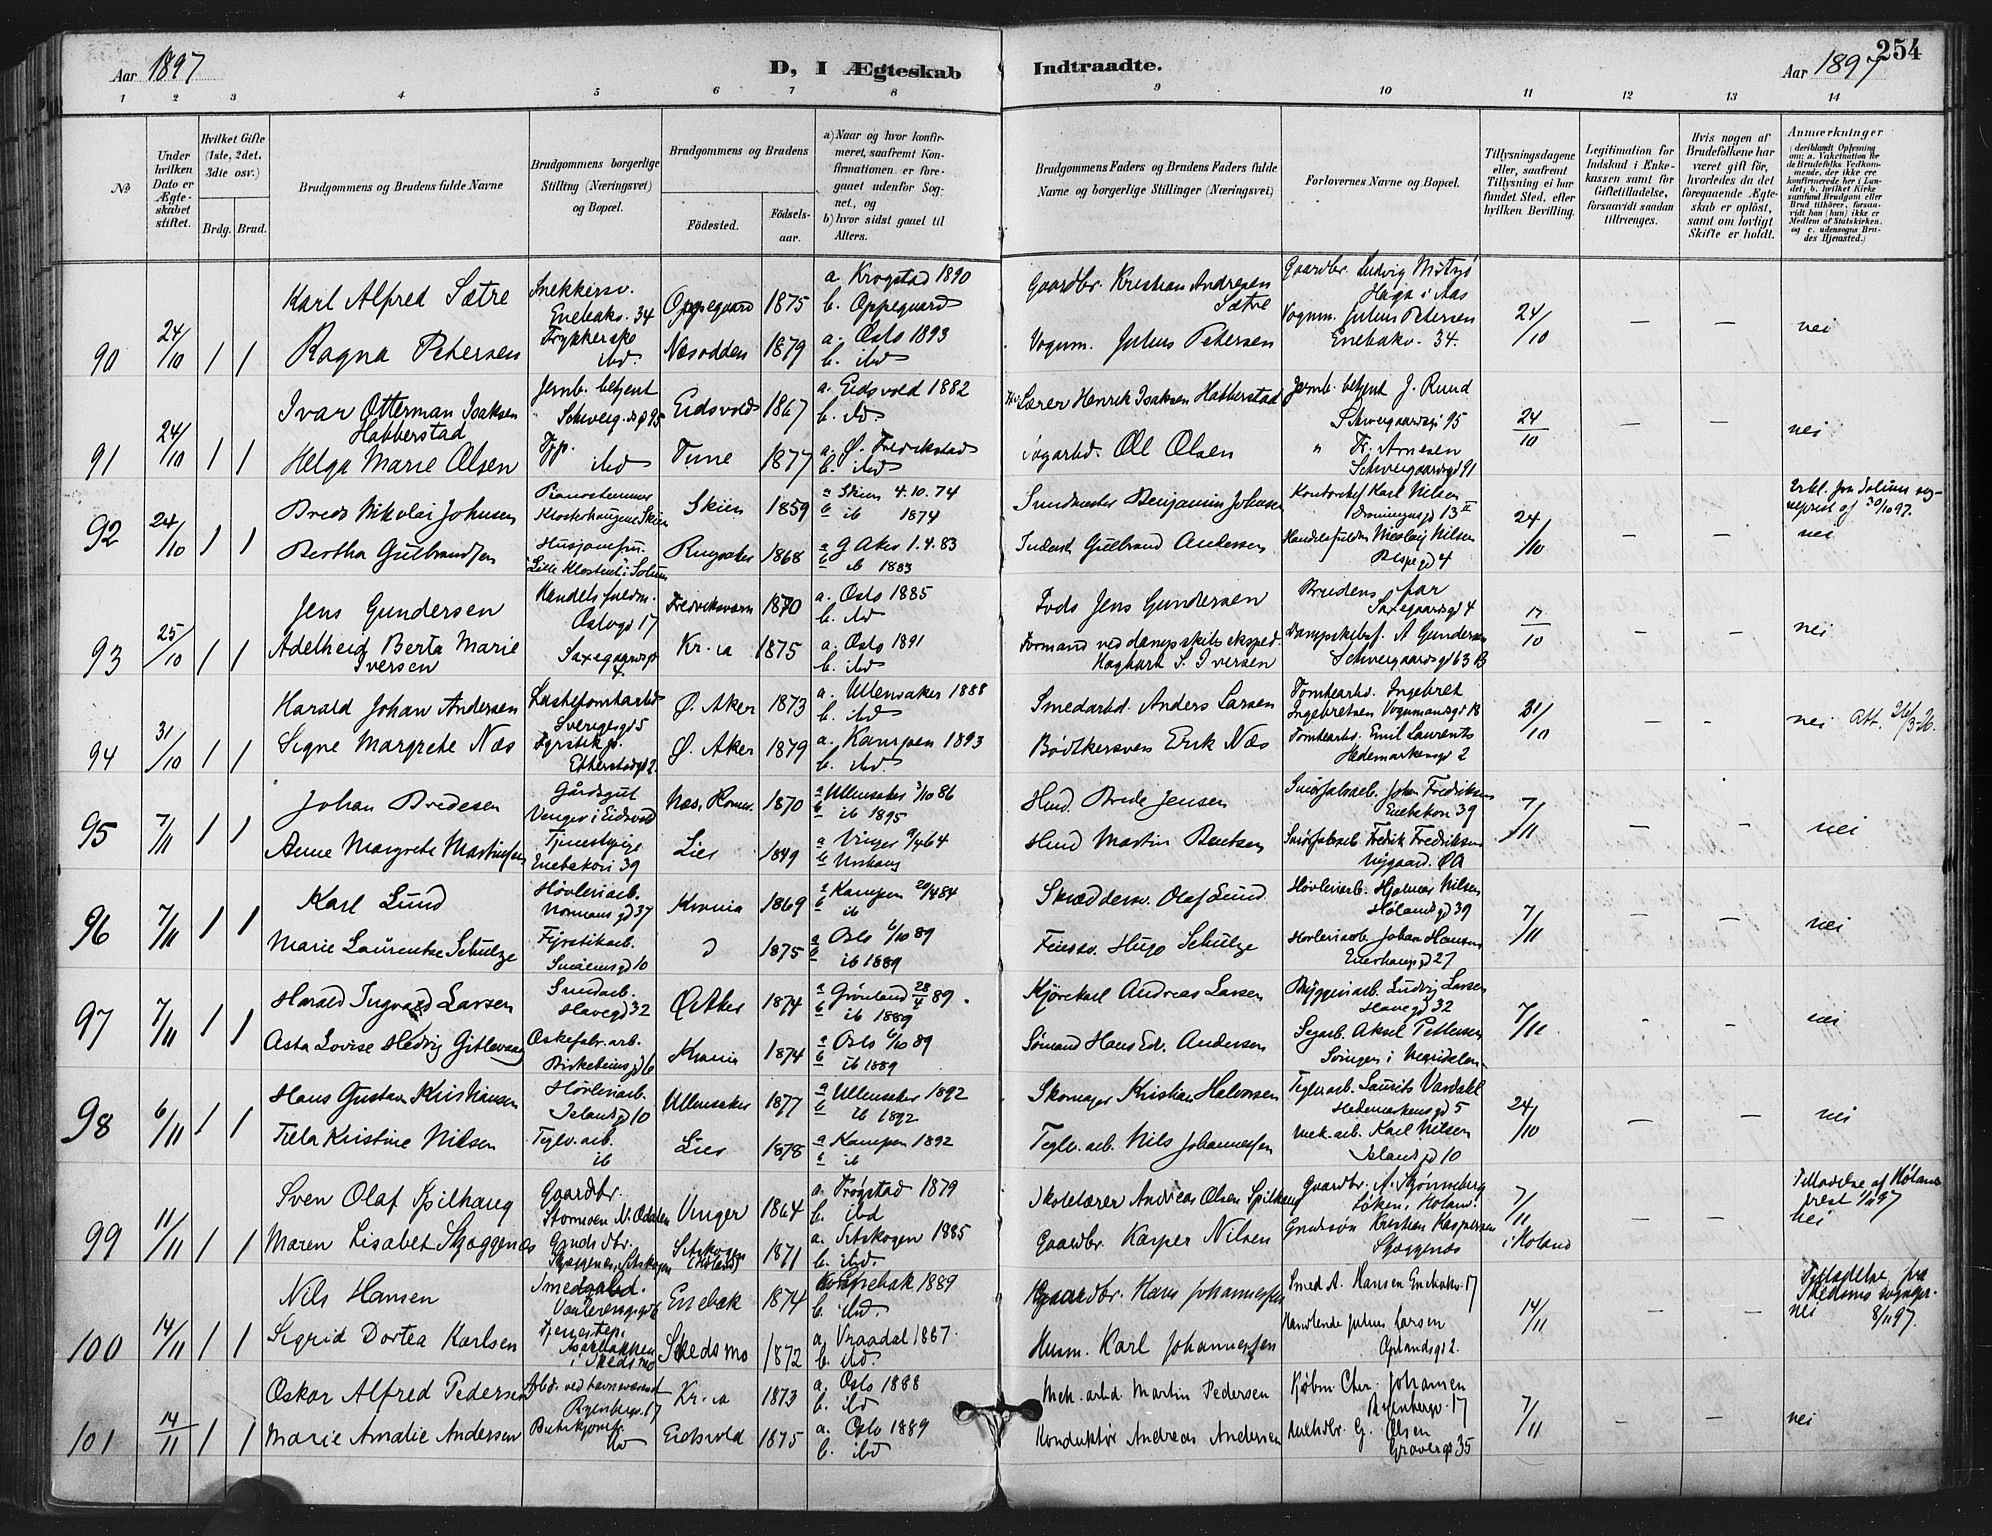 Aar 1897
D, I Ægteskab Indtraadte.
Aar 1897 254
1 2 3 4 5 6 7 8 9 10 11 12 13 14
No
Under hvilken Dato er Ægteskabet stiftet.
Hvilket Gifte (1ste, 2det, 3die osv.)
Brdg. Brud.
Brudgommens og Brudens fulde Navne
Brudgommens borgerlige Stilling (Næringsvei) og Bopæl.
Brudgommens og Brudens
Fødested. Fødsels-aar.
a) Naar og hvor konfirmeret, saafremt Konfirmationen er foregaaet udenfor Sognet, og
b) hvor sidst gaaet til Alters.
Brudgommens Faders og Brudens Faders fulde Navne og borgerlige Stillinger (Næringsvei)
Forlovernes Navne og Bopæl.
Tillysningsdagene eller, saafremt Tillysning ei har fundet Sted, efter hvilken Bevilling.
Legitimation for Indskud i Enkekassen samt for Giftetilladelse, forsaavidt saadan tiltrænges.
Hvis nogen af Brudefolkene har været gift før, hvorledes da det foregaaende Ægteskab er opløst, samt om lovligt Skifte er holdt.
Anmærkninger
(deriblandt Oplysning om: a. Vakcination for de Brudefolks Vedkommende, der ikke ere konfirmerede her i Landet; b. hvilket Kirkesamfund Brudgom eller Brud tilhører, forsaavidt han (hun) ikke er Medlem af Statskirken, og c. udensogns Brudes Hjemsted.)
90 24/10 1 1
Karl Alfred Sætre Snekkersv. Enebakv. 34 Oppegaard 1875 a. Krogstad 1890 b. Oppegaard Gaardbr. Kristian Andresen Sætre Gaardbr. Ludvig Haga i Aas 24/10 — — nei
Ragna Petersen ibd Næsodden 1879 a. Oslo 1893 b. ibd Vognm. Julius Petersen Vognm. Julius Petersen Enebakv. 34.
91 24/10 1 1
Ivar Otterman Isaksen Habberstad Jernb. betjent Schweig.sgd 95 Eidsvold 1867 a. Eidsvold 1882 b. ibd Lærer Henrik Isaksen Habberstad Jernb. betjent J. Ruud Schweigaardsg 95 24/10 — — nei
Helga Marie Olsen ibd Tune 1877 a. Ø. Fredrikstad b. ibd Ol Olsen " Fr. Arnesen Schweigaardsgd 91
92 24/10 1 1
Bred Nikolai Johnsen Pianostemmer Klosterhaugene Skien Skien 1859 a Skien 4.10.74 b ib 1874 Benjamin Johnsen Karl Nilsen Dronningensgd 13 II 24/10 — — nei
Bertha Gulbrandsen Ringsaker 1868 a G Aker 1.4.83 b ib 1883 Inderst Gulbrand Andersen Nicolay Nilsen Bispegd 4
93 25/10 1 1
Jens Gundersen Handelsfuldm. Oslogd 17 Fredriksværn 1870 a. Oslo 1885 b. ibd Jens Gundersen Brudens far Saxegaardsgd 4 17/10 — — nei
Adelheid Berta Marie Iversen Saxegaardsgd 4 Kr.ia 1875 a. Oslo 1891 b. ibd Formand ved dampskibseksped. Haghart S. Iversen A Gundersen Schweigaardsgd 63 B
94 31/10 1 1
Harald Johan Andersen Lastetomtarbd Sverigegd 5 Ø. Aker 1873 a. Ullensaker 1888 b. ibd Smedarbd. Anders Larsen Tomtearb. Ingebret Ingebretsen Vognmandsgd 18 31/10 — — nei Att. 26/3-26.
Signe Margrete Næs Etterstadgd 2. Ø. Aker 1879 a. Kampen 1893 b. ibd. Bødtkersvend Erik Næs Tomtearb. Emil Laurents Hedemarkensgd 2
95 7/11 1 1
Johan Bredesen Gårdsgut Venger i Eidsvold Næs, Rome. 1870 a Ullensaker 3/10 86 b ib 1895 Husmd. Brede Jensen Johan Fredriksen Enebakvn 39 7/11 — — nei
Anne Margrete Martinsen Tjenestpige Enebakvei 39 Lier 1849 a Vinger 9/4 64 b Urskaug Husmd Martin Bentsen Fredrik Fredriksen Nygaard. ØA
96 7/11 1 1
Karl Lund Høvleriarb. Normansgd 37 Krania 1869 a Kampen 20/4 84 b ib Skræddersv. Olaf Lund Høvleriarb. Hjalmar Nilsen Hølandsgd 39 7/11 — — nei
Marie Laurentse Schulze Fyrstikarb. Smålensgd 10 " 1875 a Oslo 6/10 89 b ib 1889 Hugo Schulze Høvleriarb. Johan Hansen Enerhaugsgd 27
97 7/11 1 1
Harald Ingvard Larsen Havegd 32 ØAker 1874 a Grønland 28/4 89. b ib 1889 Kjørekarl Andreas Larsen Bryggeriarb. Ludvig Larsen Havegd 32 7/11 - - nei
Asta Lovise Hedvig Gitlevsen Æskefabr. arb. Birkebeinsgd 6 Krania 1874 a Oslo 6/10 89 b ib 1889 Sømand Hans Ed. Andersen Aksel Pettersen Svingen i
98 6/11 1 1
Hans Gustav Kristiansen Høvleriarb. Islandsgd 10 Ullensaker 1877 a Ullensaker 1892 b ib 1892 Skomager Kristian Halvorsen Teglv. arb. Laurits Vardahl Hedemarkensgd 5 24/10 — — nei
Tilla Kristine Nilsen Teglv. arb. ib Lier 1878 a Kampen 1892 b ib Teglv. arb. Nils Johannessen Mek. arb. Karl Nilsen Islandsgd 10
99 11/11 1 1
Sven Olaf Spilhaug Gaardbr. Stomoen N. Odalen Vinger 1864 a. Trøgstad 1879 b. ibd Skolelærer Andreas Olsen Spilhaug Gaardbr. A. Skjønneberg Løken, Høland. 7/11 — — Tilladelse af Hølands prest 1/11 97 nei
Maren Lisabet Skjæggenæs Gaardbr. Setskogen (Høland) 1871 a. Setskogen 1885 b. ibd. Gaardbr. Kasper Nilsen Kristian Kaspersen Skjæggenæs i Høland
100 14/11 1 1
Nils Hansen Smedarbd. Enebak 1874 Enebak 1889 b. ibd. Gaardbr. Hans Johannessen Smed A. Hansen Enebakv. 17 14/11 — — Tilladelse fra Skedsmo sogneprest 8/11 97. nei
Sigrid Dortea Karlsen Tjenestep. i Skedsmo Skedsmo 1872 a. Vraadal 1887. b. ibd. Husm. Karl Johannessen Handlende Julius Larsen Oplandsgd 2.
101 14/11 1 1
Oskar Alfred Pedersen Arbd. ved havnevæsend Ryenbergv. 17 Kr.ia 1873 a. Oslo 1888 b. ibd Mek. arbd. Martin Pedersen Kjøbm Chr. Johansen Ryenbergv. 17 7/11 — — nei
Marie Amalie Andersen ibd Eidsvold 1875 a. Oslo 1889 b. ibd Konduktør Andreas Andersen G. Olsen Grøvergd 35